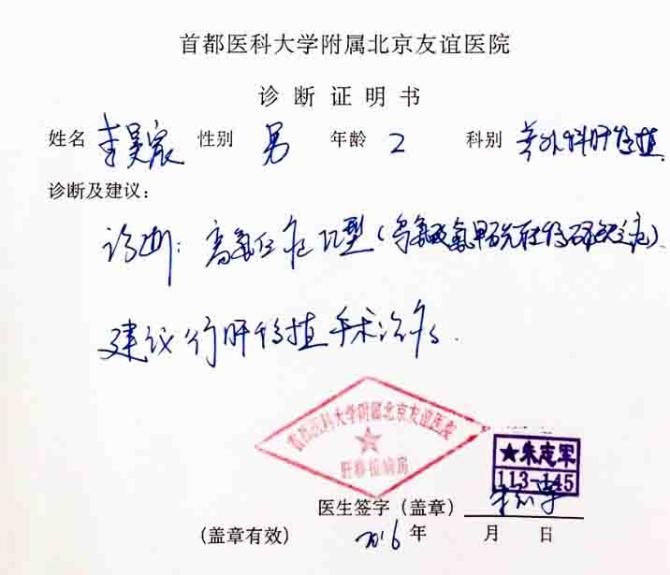 首都医科大学附属北京友谊医院
诊断证明书
姓名 李昊宸 性别 男 年龄 2 科别 普外科肝移植
诊断及建议：
诊断：高氨血症Ⅱ型（鸟氨酸氨甲酰转移酶缺乏症）
建议行肝移植手术治疗.
首都医科大学附属北京友谊医院
肝移植病房
★朱志军
113-145
医生签字（盖章） 朱志军
（盖章有效） 2016 年 月 日